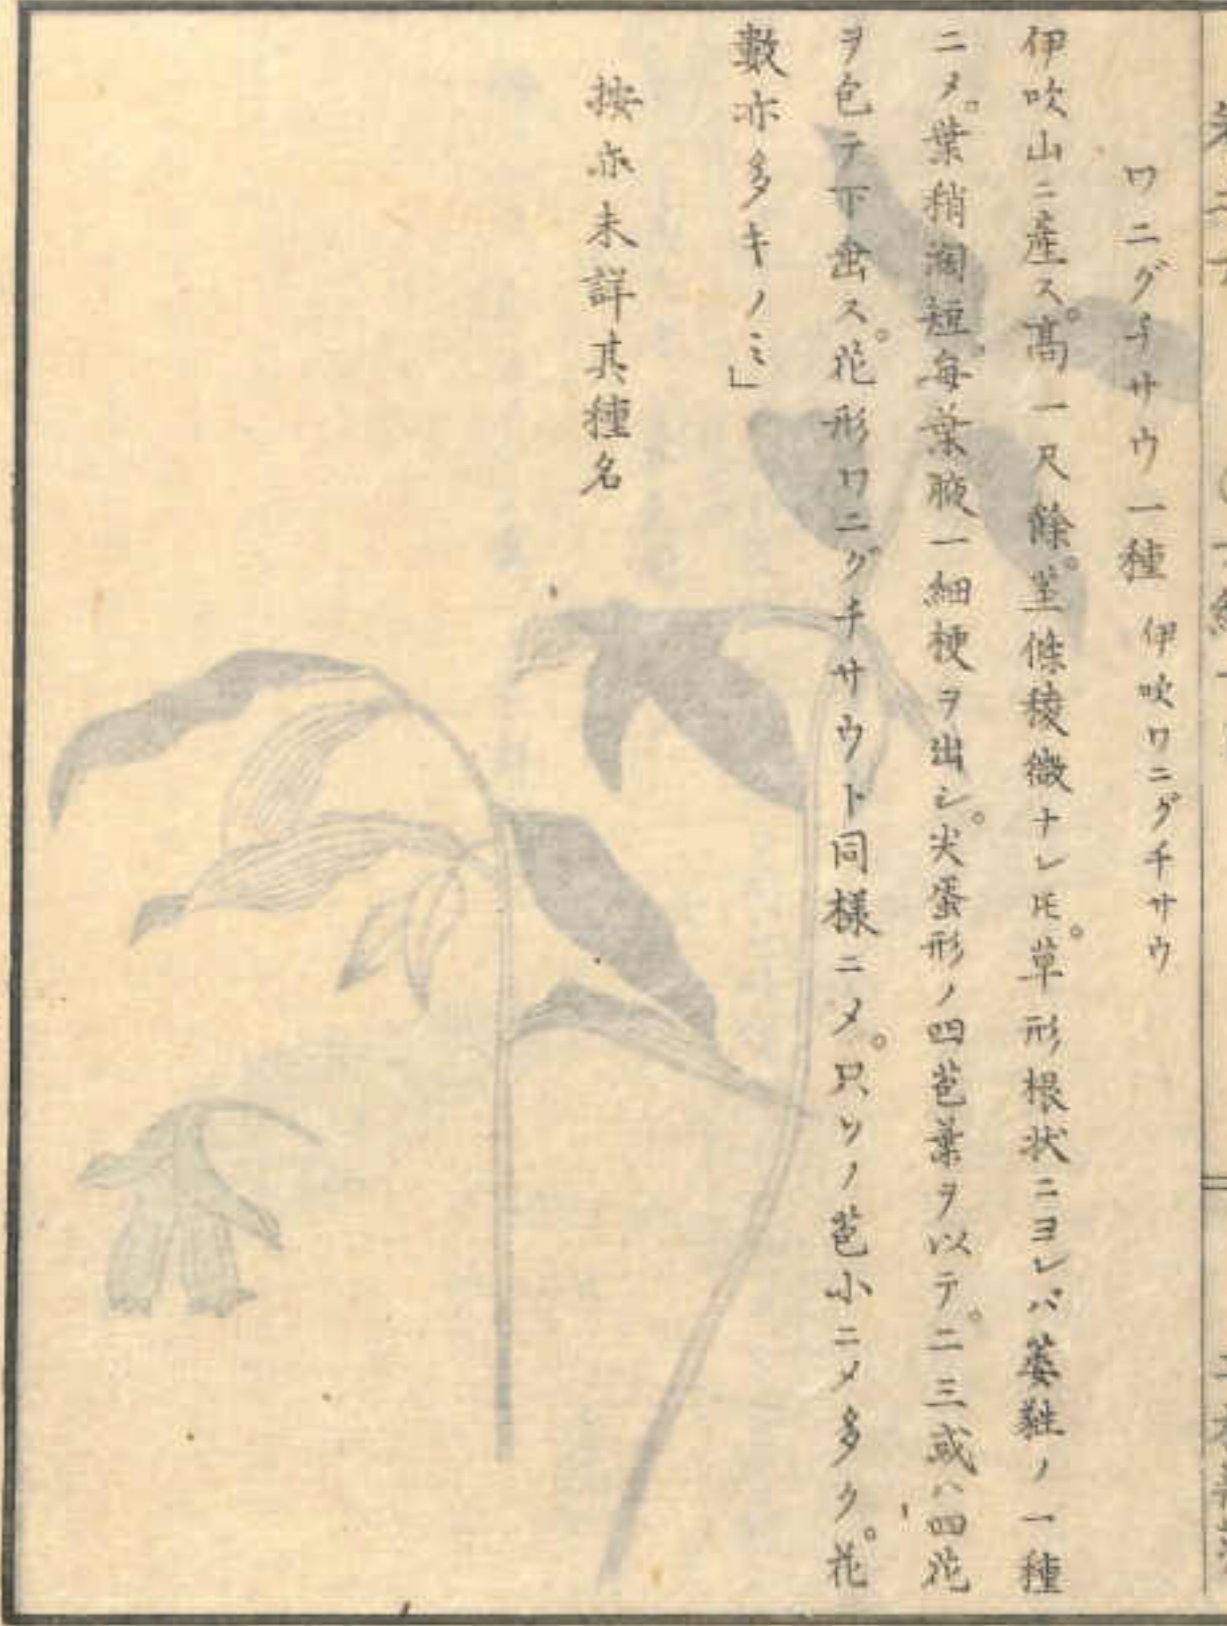 ワニグチサウ一種 伊吹ワニグチサウ
伊吹山ニ産ス。高一尺餘。莖條稜微ナレ𪜈。草形根状ニヨレバ萎蕤ノ一種
ニメ。葉稍濶短。每葉腋一細梗ヲ出シ。尖蛋形ノ四苞葉ヲ以テ。二三或ハ四花
ヲ包テ下垂ス。花形ワニグチサウト同様ニメ。只ソノ苞小ニメ多ク。花
數亦多キノミ」
按亦未詳其種名